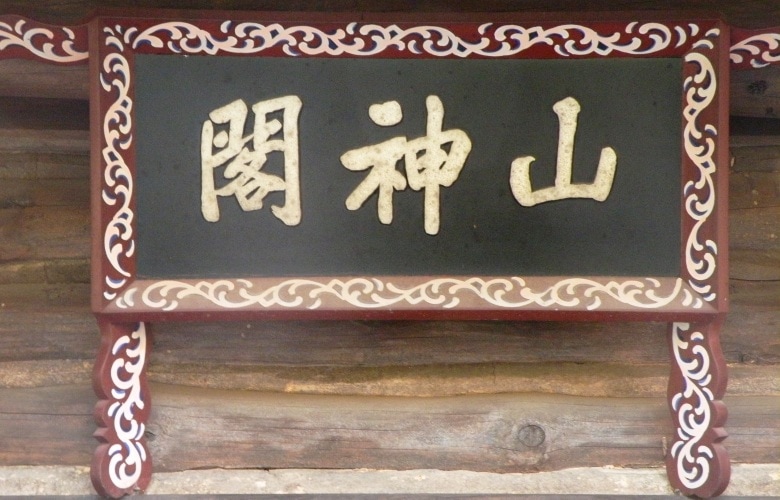 山神閣